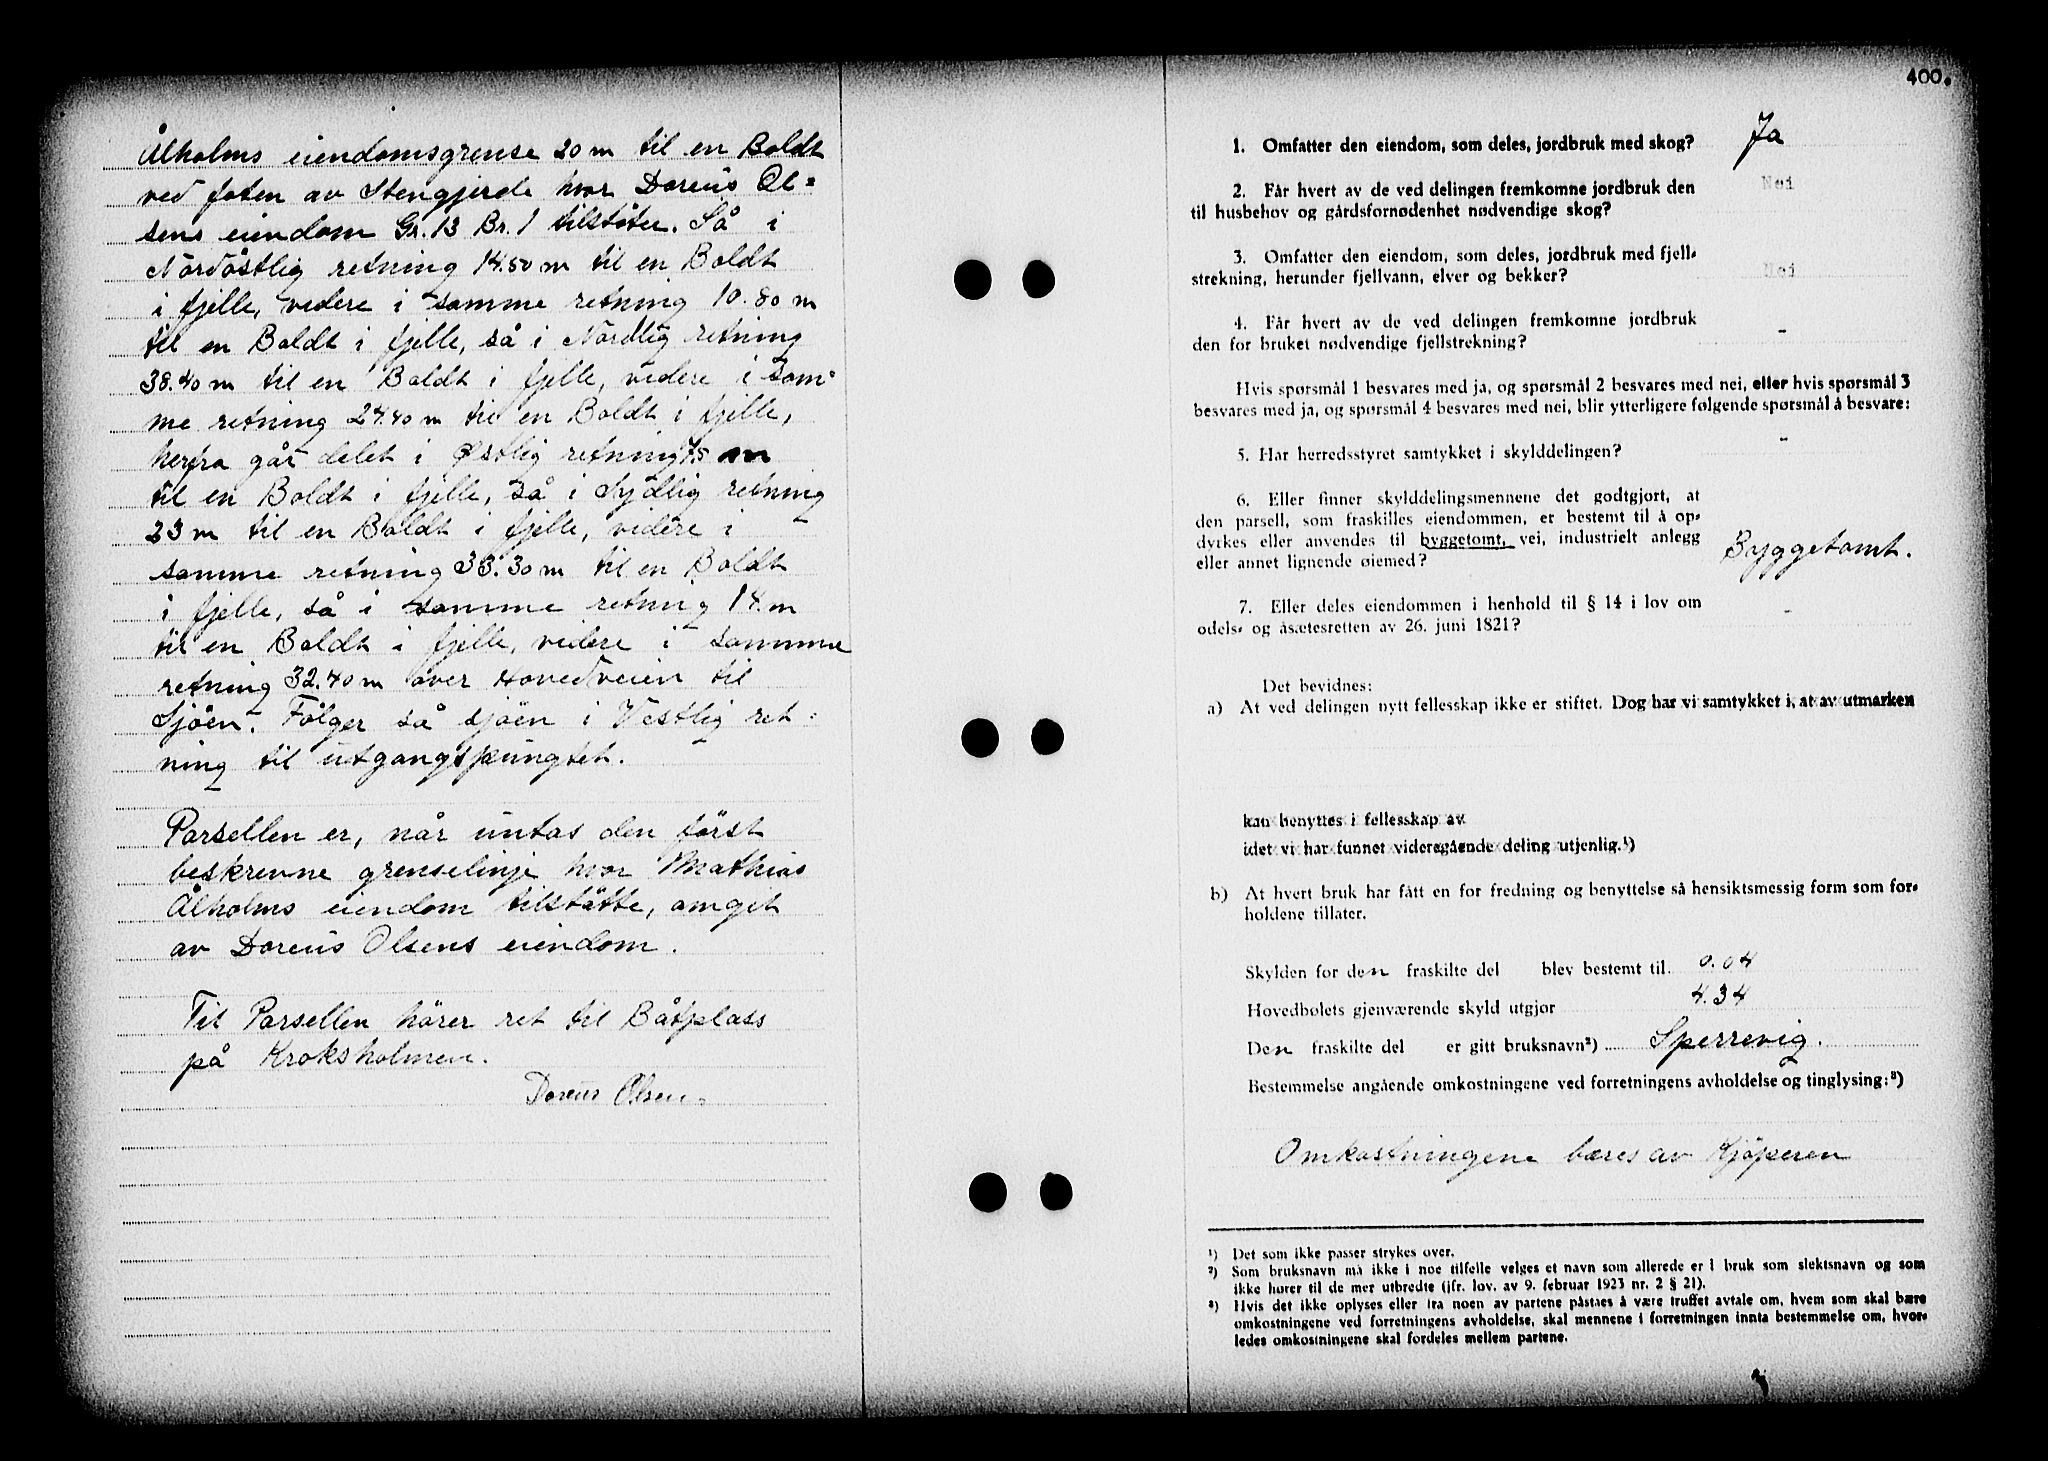 Ålholms eiendomsgrense 20 m til en Boldt
ved foten av Stengjerde hvor Doreus Ol=
sens eiendom Gr. 13 Br. 1 tilstöter. Så i
Nordöstlig retning 14.50 m til en Boldt
i fjelle, videre i samme retning 10.80 m
til en Boldt i fjelle, så i Nordlig retning
38.40 m til en Boldt i fjelle, videre i sam=
me retning 24.40 m til en Boldt i fjelle,
herfra går delet i Østlig retning 7.5 m
til en Boldt i fjelle, så i Sydlig retning
23 m til en Boldt i fjelle, videre i
samme retning 33.30 m til en Boldt
i fjelle, så i samme retnig 14. m
til en Boldt i fjelle, videre i sammme
retning 32.40 m over Hovedveien til
Sjöen. Fölger så sjöen i Vestlig ret=
ning til utgangspungtet.
Parsellen er, når untas den först
beskrevne grenselinje hvor Mathias
Ålholms eiendom tilstötte, omget
av Doreus Olsens eiendom.
Til Parsellen hörer ret til Båtplass
på Kroksholmen.
Doreus Olsen.
400.
1. Omfatter den eiendom, som deles, jordbruk med skog? Ja
2. Får hvert av de ved delingen fremkomne jordbruk den Nei
til husbehov og gårdsfornødenhet nødvendige skog?
3. Omfatter den eiendom, som deles, jordbruk med fjell-
strekning, herunder fjellvann, elver og bekker? Nei
4. Får hvert av de ved delingen fremkomne jordbruk
den for bruket nødvendige fjellstrekning? -
Hvis spørsmål 1 besvares med ja, og spørsmål 2 besvares med nei, eller hvis spørsmål 3
besvares med ja, og spørsmål 4 besvares med nei, blir ytterligere følgende spørsmål å besvare:
5. Har herredsstyret samtykket i skylddelingen? -
6. Eller finner skylddelingsmennene det godtgjort, at
den parsell, som fraskilles eiendommen, er bestemt til å op-
dyrkes eller anvendes til byggetomt, vei, industrielt anlegg Byggetomt.
eller annet lignende øiemed?
7. Eller deles eiendommen i henhold til § 14 i lov om
odels- og åsætesretten av 26. juni 1821? -
Det bevidnes:
a) At ved delingen nytt fellesskap ikke er stiftet. Dog har vi samtykket i, at av utmarken
kan benyttes i fellesskap av
idet vi har funnet videregående deling utjenlig.¹)
b) At hvert bruk har fått en for fredning og benyttelse så hensiktsmessig form som for-
holdene tillater.
Skylden for den fraskilte del blev bestemt til 0.04
Hovedbølets gjenværende skyld utgjør 4.34
Den fraskilte del er gitt bruksnavn²) Sperrevig.
Bestemmelse angående omkostningene ved forretningens avholdelse og tinglysing:³)
Omkostningene bæres av Kjöperen
¹) Det som ikke passer strykes over.
²) Som bruksnavn må ikke i noe tilfelle velges et navn som allerede er i bruk som slektsnavn og som
ikke hører til de mer utbredte (jfr. lov. av 9. februar 1923 nr. 2 § 21).
³) Hvis det ikke oplyses eller fra noen av partene påstaes å være truffet avtale om, hvem som skal bære
omkostningene ved forretningens avholdelse, skal mennene i forretningen innta bestemmelse om, hvor-
ledes omkostningene skal fordeles mellem partene.